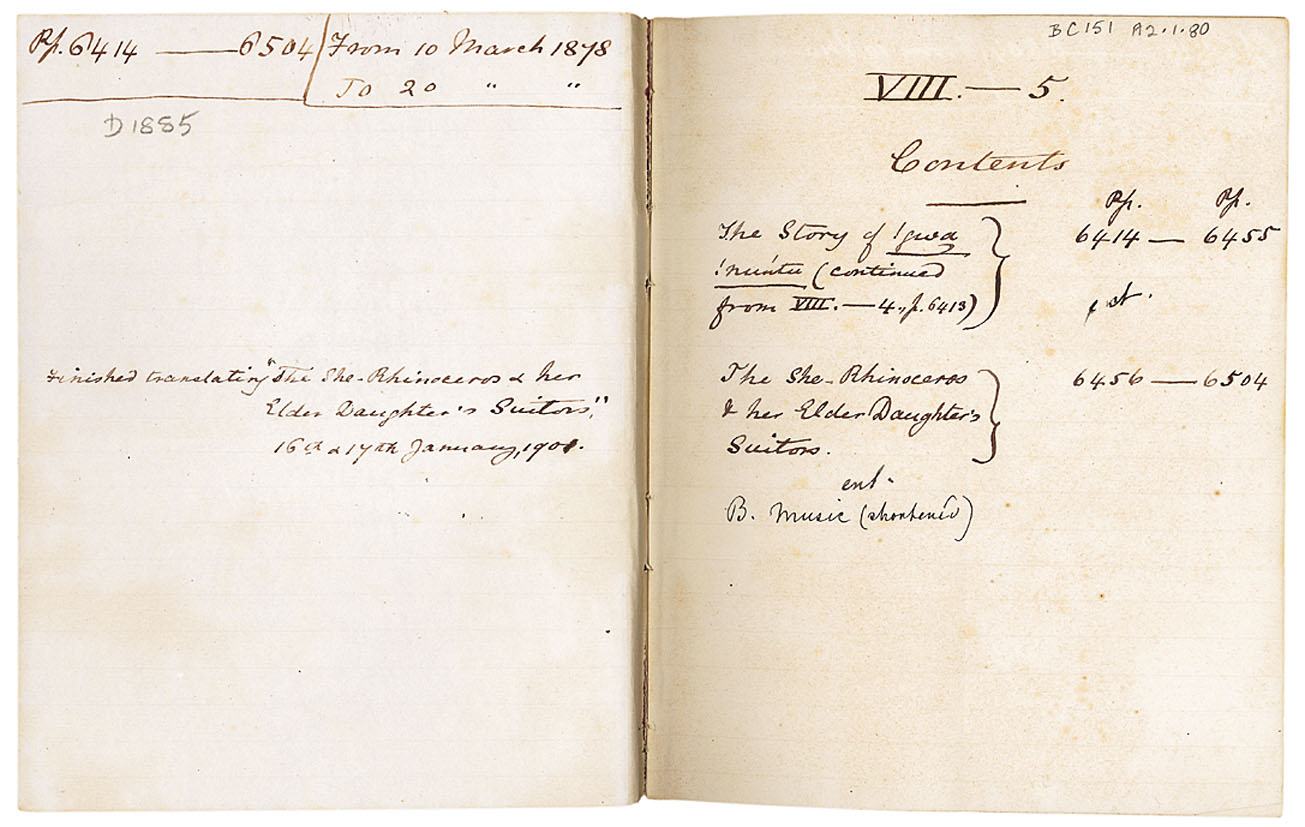 Pp. 6414 — 6504 From 10 March 1878
To 20 " "
D1885
Finished translating "The She-Rhinoceros & her
Elder Daughter's Suitors,"
16th & 17th January, 1901.
BC151 A2.1.80
VIII. — 5.
Contents
Pp. Pp.
The Story of !gwa 6414 — 6455
!nuntu (continued
from VIII. — 4., p. 6413)
The She-Rhinoceros 6456 — 6504
& her Elder Daughter's
Suitors.
B. Music (shortened)